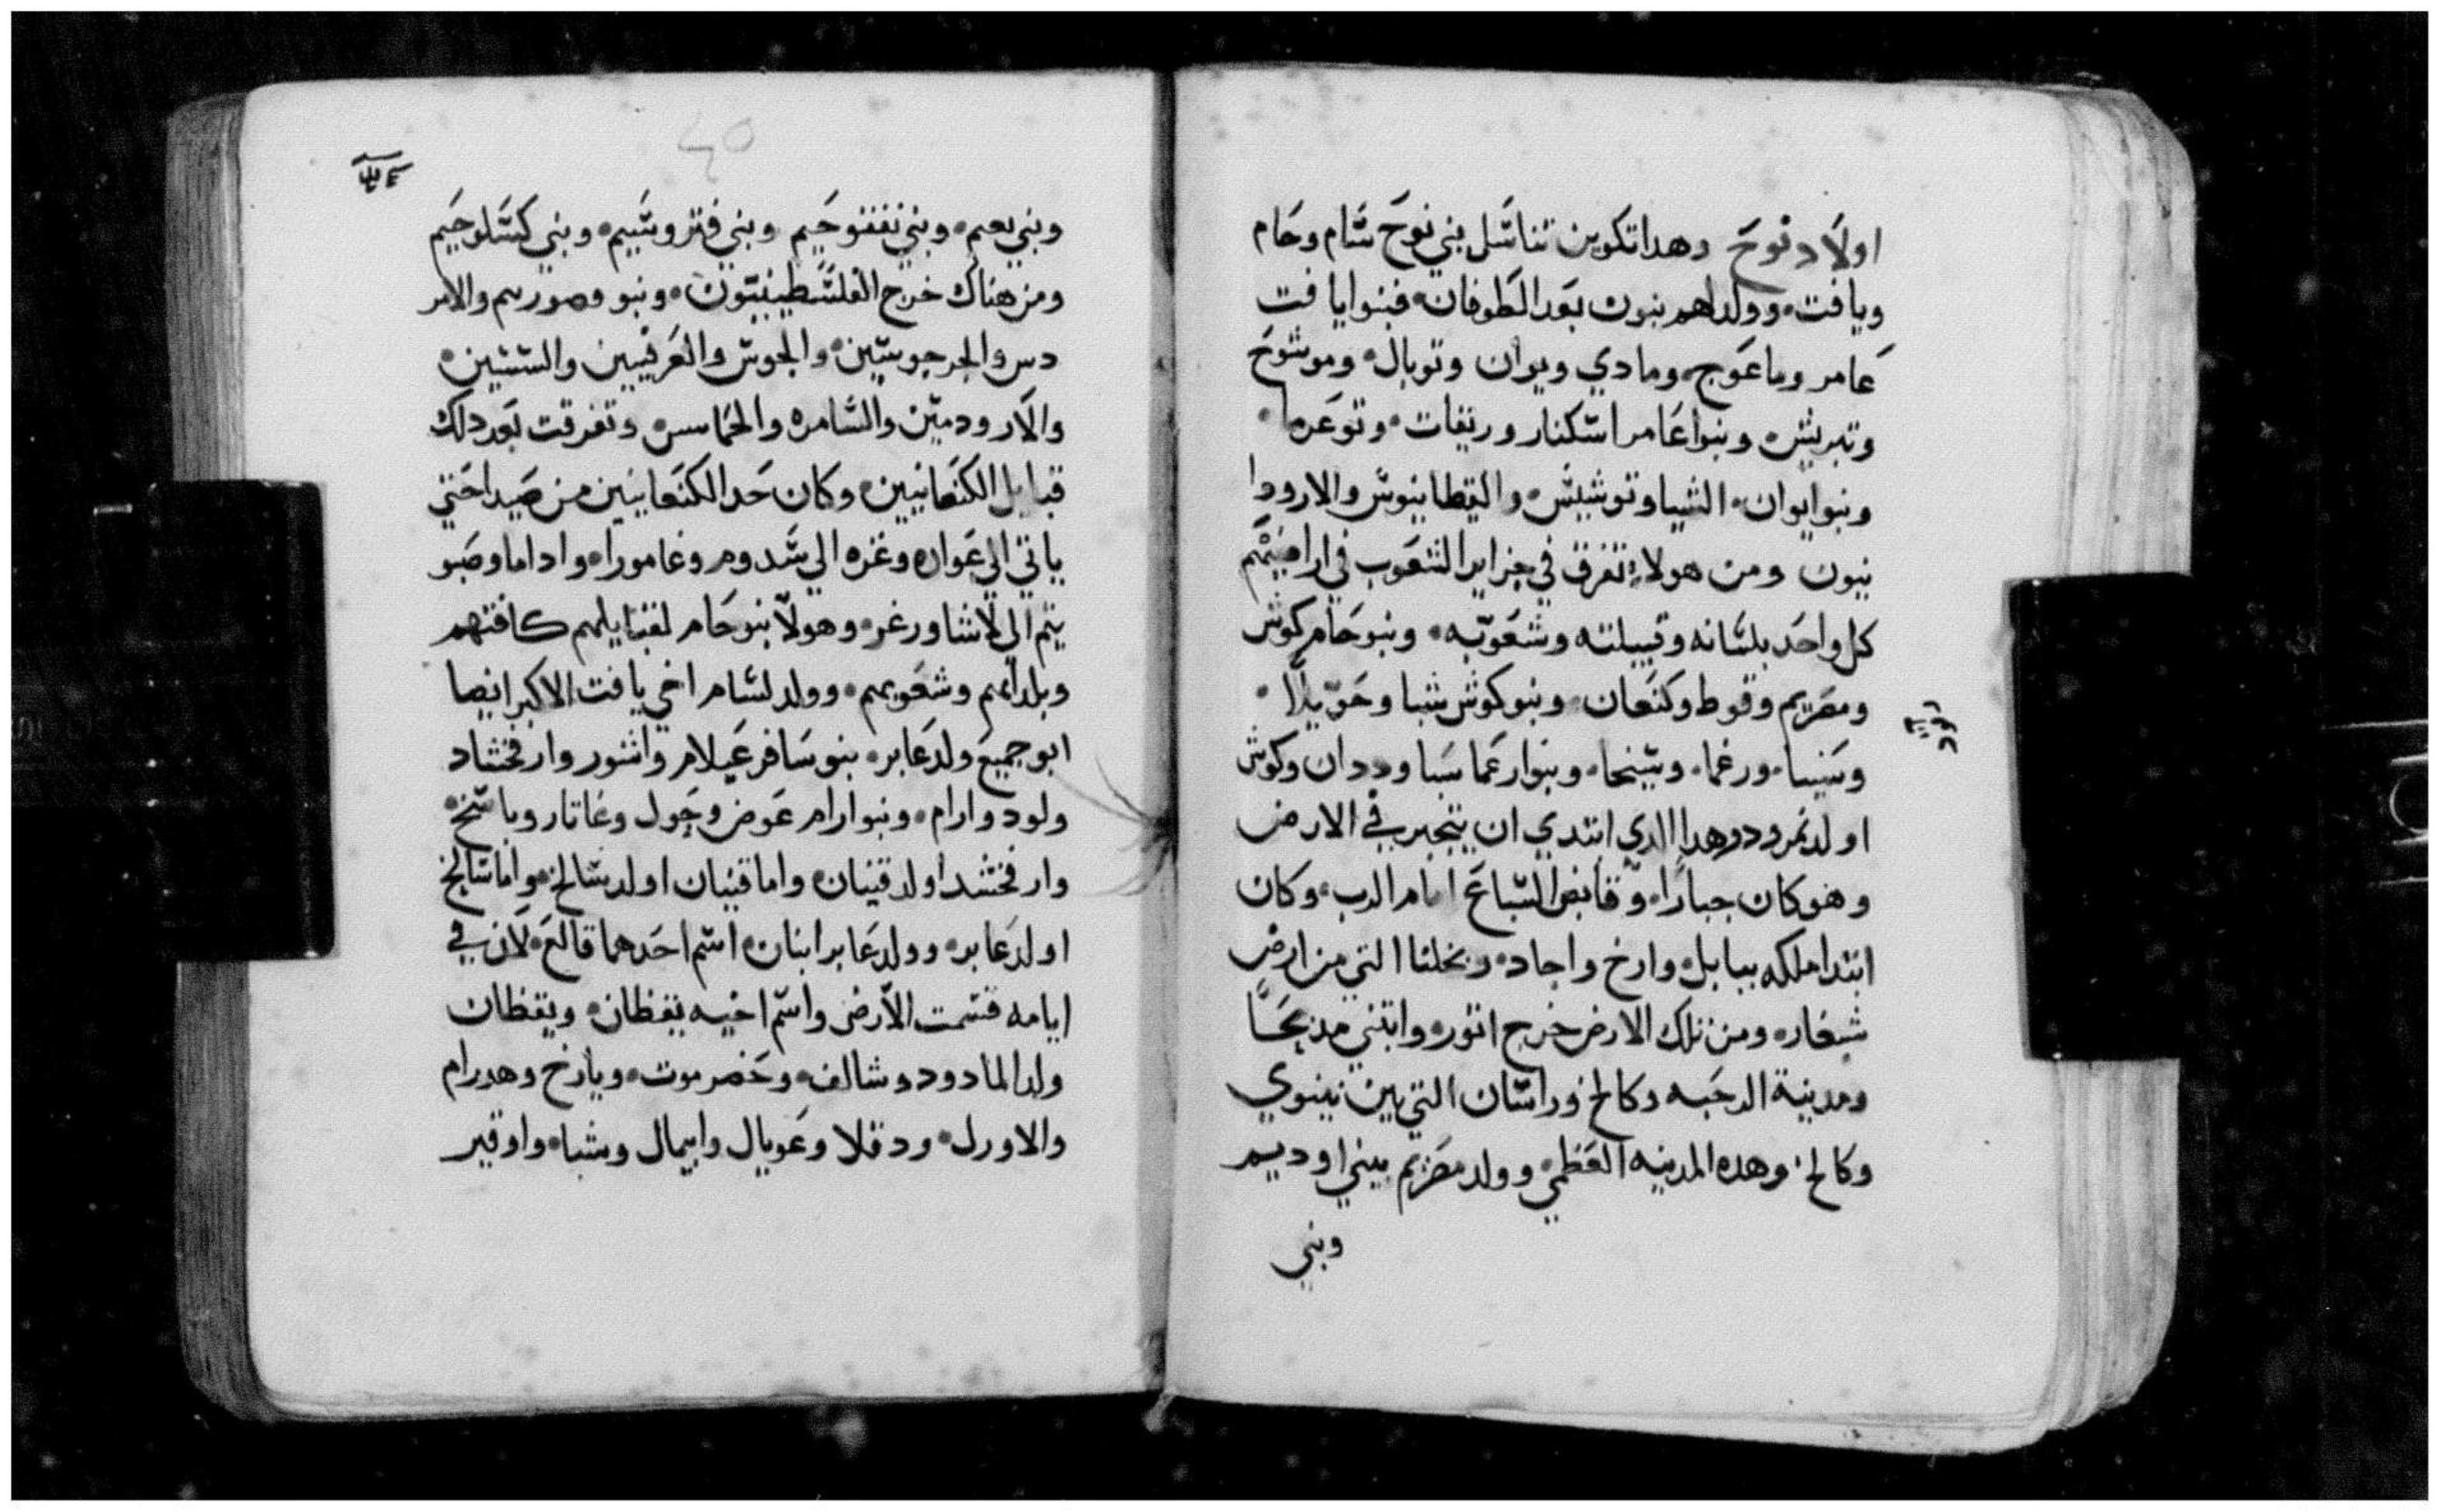 اولاد نوح وهدا تكوين تناسل بني نوح سام وحام
ويافت. وولد لهم بنون بعد الطوفان. فبنوا يافت
عامر وماعوج. ومادي ويوان وتوبال. وموشوخ
وتبريش. وبنوا عامر اسكنار وريفات. وتوعرما.
وبنو ايوان. الشيا وتوشيش. والقيطانيوش والارودا
نيون ومن هولاء تفرق في جزاير الشعوب في اراضيهم
كل واحد بلسانه وقبيلته وشعوبه. وبنو حام كوش
ومصريم وقوط وكنعان. وبنو كوش شبا وحويلا.
وسنسا. ورغما. وستخا. وبنوا رغما سبا وددان وكوش
اولد نمرود وهدا الدي ابتدي ان يتجبر في الارض
وهو كان جبارا. وقانص السباع امام الرب. وكان
ابتدا ملكه ببابل. وارخ واجاد. وبخلنا التي من ارض
شنعار. ومن تلك الارض خرج اتور. وابتني
ومدينة الرحبه وكالخ وراسان التي بين نينوي
وكالخ. وهده المدينه العظمي. وولد مصريم بيني اوديم
وبني
وبني بعيم. وبني نفتوحيم وبني فتروسيم. وبني كسلوحيم
ومن هناك خرج الفلسطينيون. وبنو والامر
دس والجرجوسين. والجوش والعرقيين والسنيين.
والاروديين والسامره والحماسن وتفرقت بعد دلك
قبايل الكنعانيين. وكان حد الكنعانيين من صيدا حتي
ياتي الي عواره وغزه الي سدوم وغامورا. واداما وصبو
ييم الي لاشا ورغر. وهولا بنو حام لقبايلهم كافتهم
وبلدانهم وشعوبهم. وولد لسام اخي يافت الاكبر ايضا
ابو جميع ولد عابر. بنو سام عيلام واشور وارفخشاد
ولود وارام. وبنوا ارام عوض وحول وغاتار وماسخ.
وارفخشد اولد قينان. واما قينان اولد سالخ. واما سالخ
اولد عابر. وولد عابر ابنان. اسم احدهما قالع. لان في
ايامه قسمت الارض واسم اخيه يقظان. ويقظان
ولد المادود وشالف. وحضرموت. ويارخ وهدرام
والاورل. ودقلا وعوبال وابيمال وشبا. واوقير